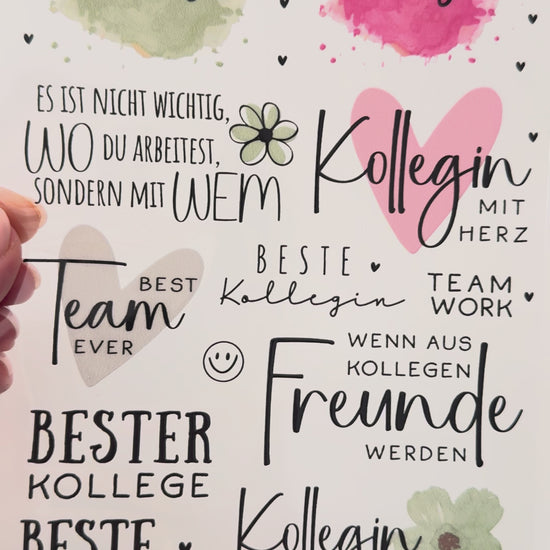 ES IST NICHT WICHTIG,
WO DU ARBEITEST,
SONDERN MIT WEM
Kollegin
MIT
HERZ
BEST
Team
EVER
BESTE
Kollegin
TEAM
WORK
WENN AUS
KOLLEGEN
Freunde
WERDEN
BESTER
KOLLEGE
BESTE
Kollegin